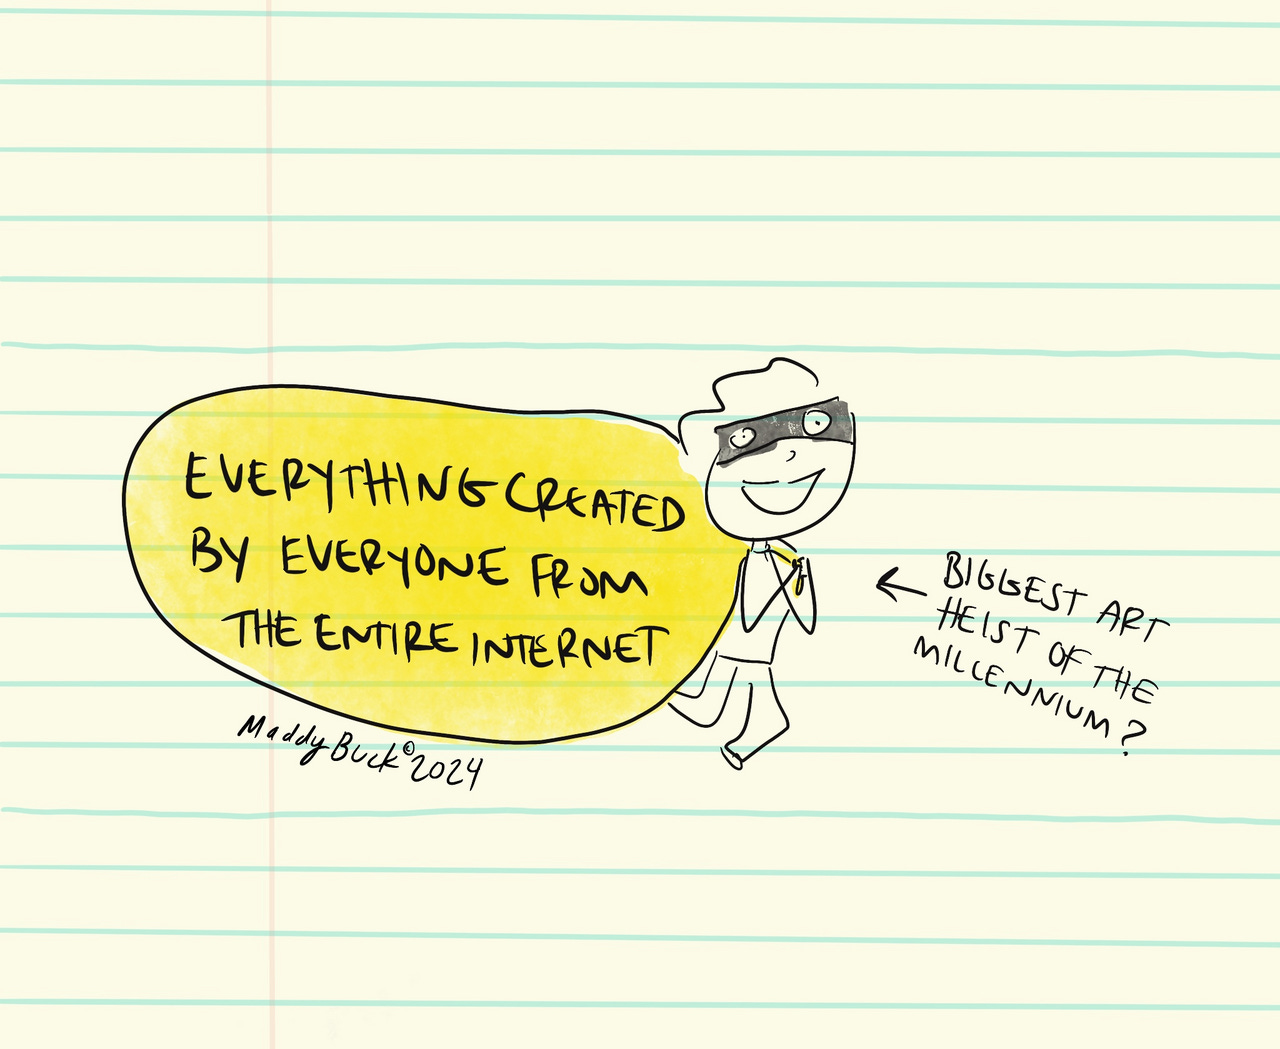 EVERYTHING CREATED
BY EVERYONE FROM
THE ENTIRE INTERNET
Maddy Buck © 2024
BIGGEST ART
HEIST OF THE
MILLENNIUM?